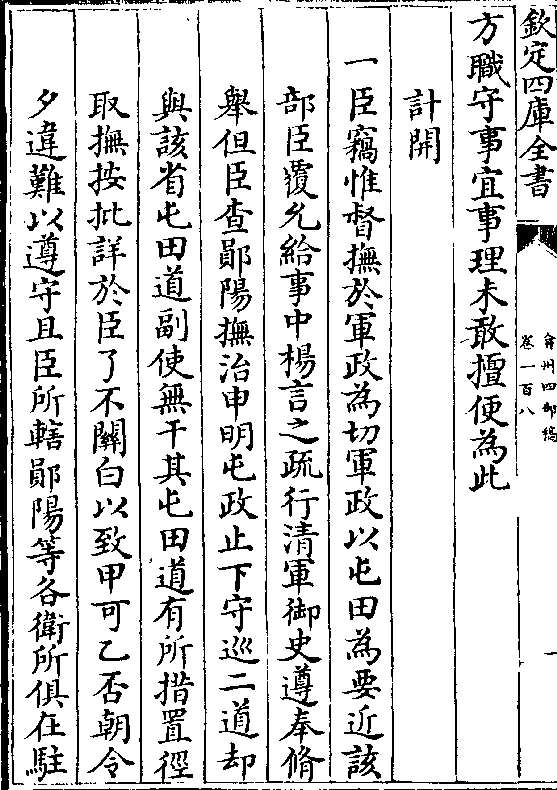 欽定四庫全書
弇州四部稿
卷一百八
方職守事宜事理未敢擅便為此
計開
一臣竊惟督撫於軍政為切軍政以屯田為要近該
部臣覆允給事中楊言之疏行清軍御史遵奉脩
舉但臣查鄖陽撫治申明屯政止下守巡二道却
與該省屯田道副使無干其屯田道有所措置徑
取撫按批詳於臣了不關白以致甲可乙否朝令
夕違難以遵守且臣所轄鄖陽等各衛所俱在駐